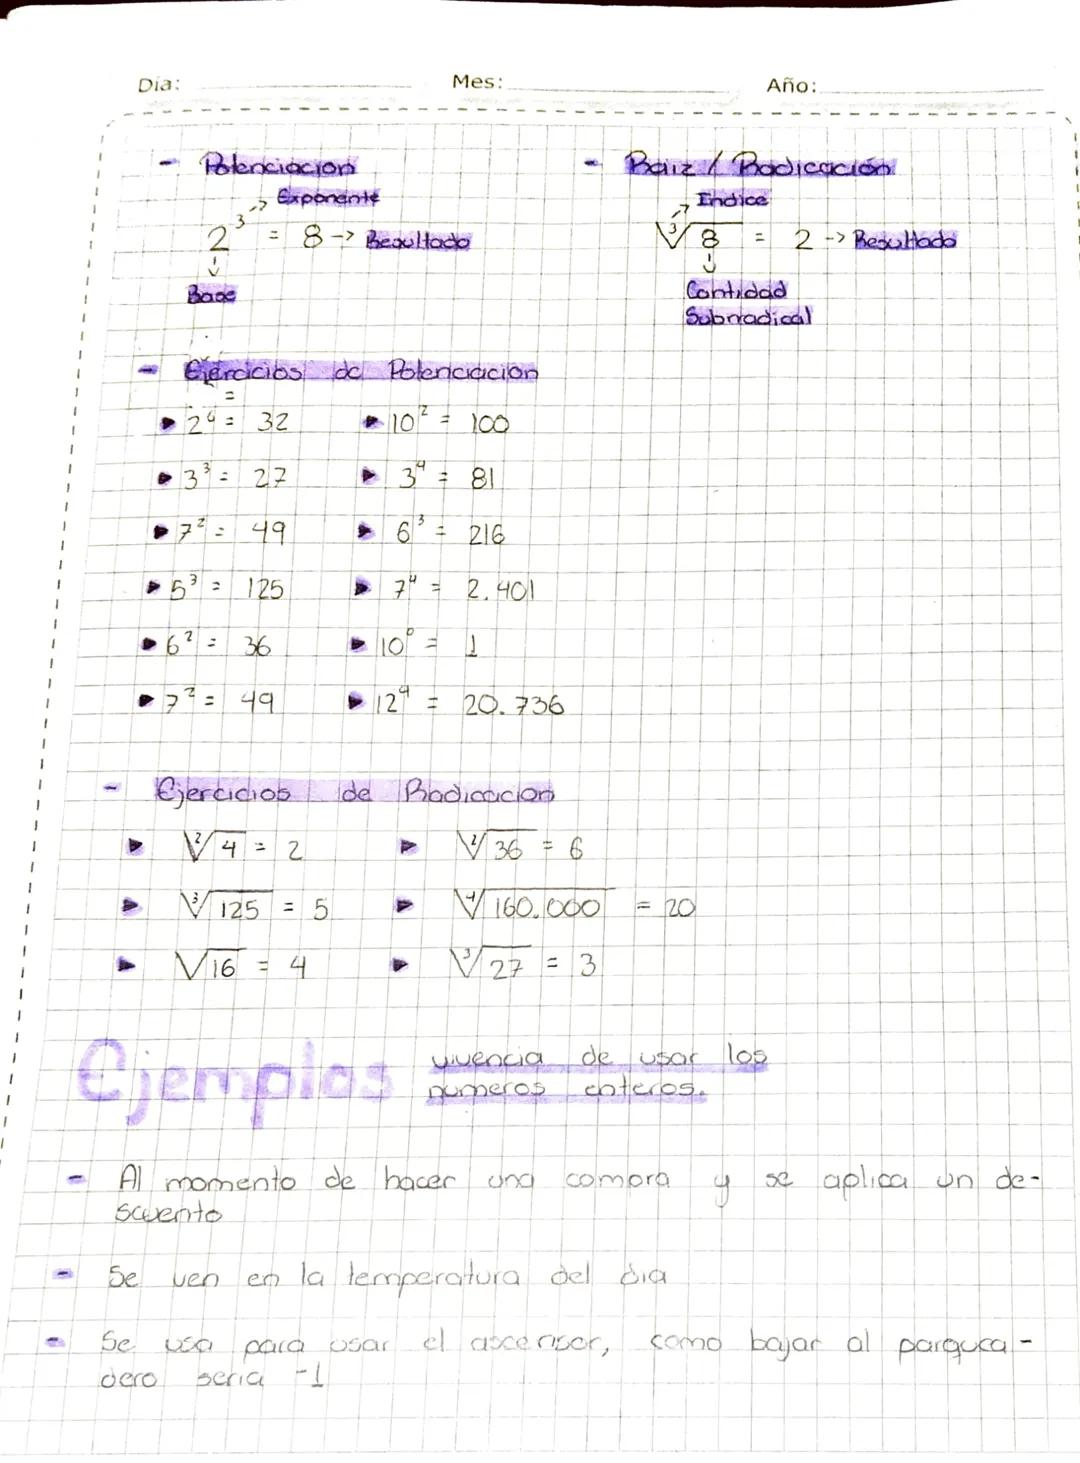 Día: Mes: Año:
- Potenciacion
-> Exponente
2³ = 8 -> Resultado
Base
- Raiz / Radicación
-> Indice
³√8 = 2 -> Resultado
Cantidad
Subrradical
- Ejercicios de Potenciacion
2⁶ = 32 10² = 100
3³ = 27 3⁴ = 81
7² = 49 6³ = 216
5³ = 125 7⁴ = 2.401
6² = 36 10⁰ = 1
7² = 49 12⁴ = 20.736
- Ejercicios de Radicacion
²√4 = 2 ²√36 = 6
³√125 = 5 ⁴√160.000 = 20
√16 = 4 ³√27 = 3
Ejemplos vivencia de usar los
numeros enteros.
- Al momento de hacer una compra y se aplica un de-
scuento
- Se ven en la temperatura del dia
- Se usa para usar el ascensor, como bajar al parquea-
dero seria -1